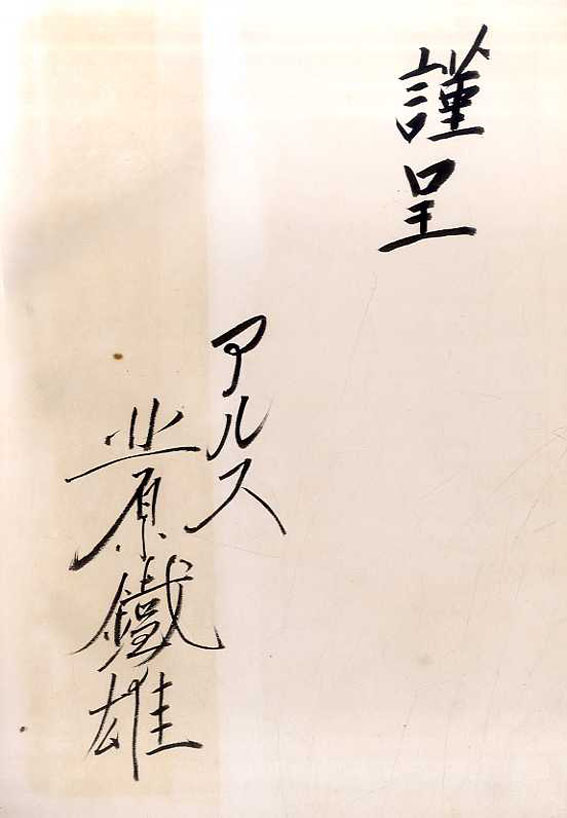 謹呈
アルス
北原鐵雄